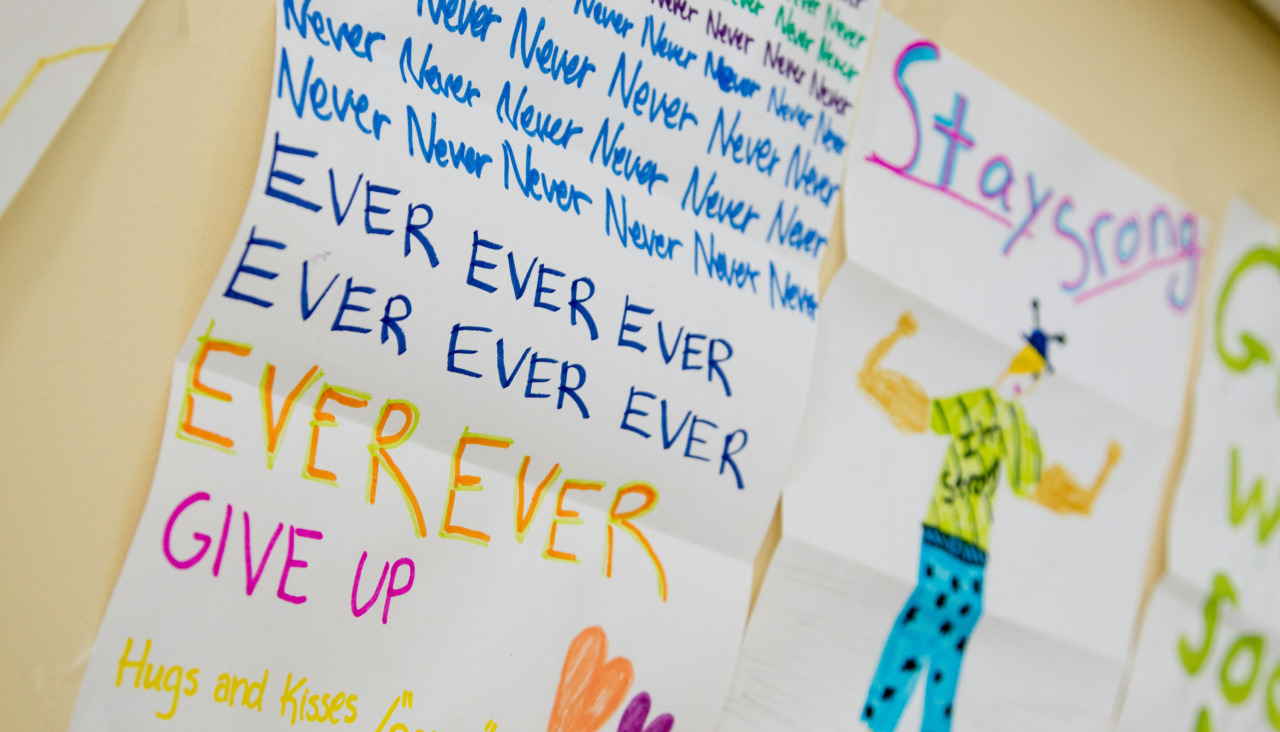 Never
Never Never
Never Never Never Never
Never Never Never Never Never
Never Never Never Never Never
Never Never Never Never Never Never
Never Never Never Never Never Never
EVER EVER EVER
EVER EVER EVER
EVER EVER
GIVE UP
Hugs and Kisses
Stay srong
I'm
strong